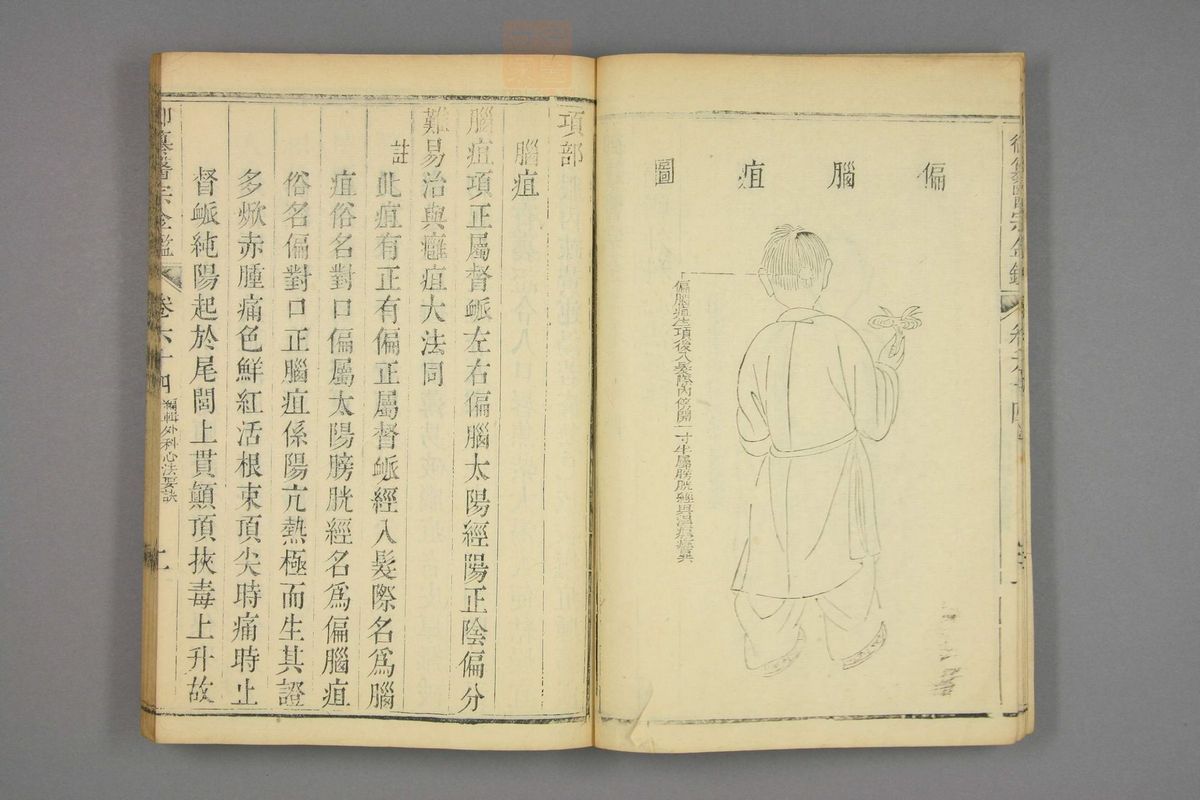 御纂醫宗金鑑
卷六十四
偏腦疽圖
偏腦疽生項後入髮際內傍開一寸半屬膀胱經
項部
腦疽
腦疽項正屬督衇左右偏腦太陽經陽正陰偏分
難易治與癰疽大法同
註 此疽有正有偏正屬督衇經入髮際名爲腦
疽俗名對口偏屬太陽膀胱經名爲偏腦疽
俗名偏對口正腦疽係陽亢熱極而生其證
多焮赤腫痛色鮮紅活根束頂尖時痛時止
督衇純陽起於尾閭上貫顚頂挾毒上升故
御纂醫宗金鑑 卷六十四 編輯外科心法要訣